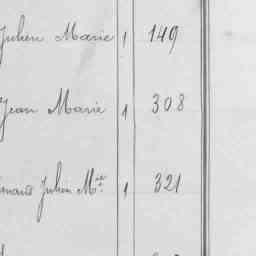 Julien Marie 1 149
Jean Marie 1 308
Julien Mie 1 321